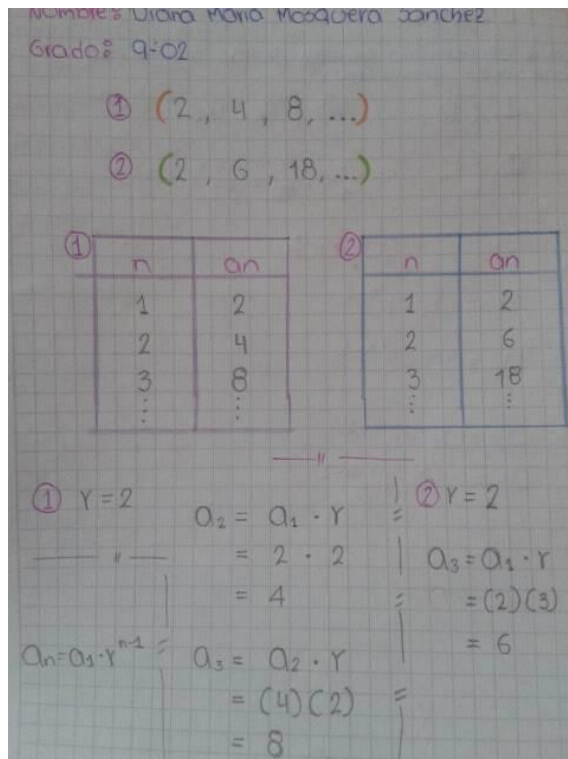 Nombre: Diana Maria Mosquera Sanchez
Grado: 9-02
① (2, 4, 8, ...)
② (2, 6, 18, ...)
①
n an
1 2
2 4
3 8
⋮ ⋮
②
n an
1 2
2 6
3 18
⋮ ⋮
① r = 2
a₂ = a₁ · r
= 2 · 2
= 4
aₙ = a₁ · rⁿ⁻¹
a₃ = a₂ · r
= (4)(2)
= 8
② r = 2
a₃ = a₁ · r
= (2)(3)
= 6